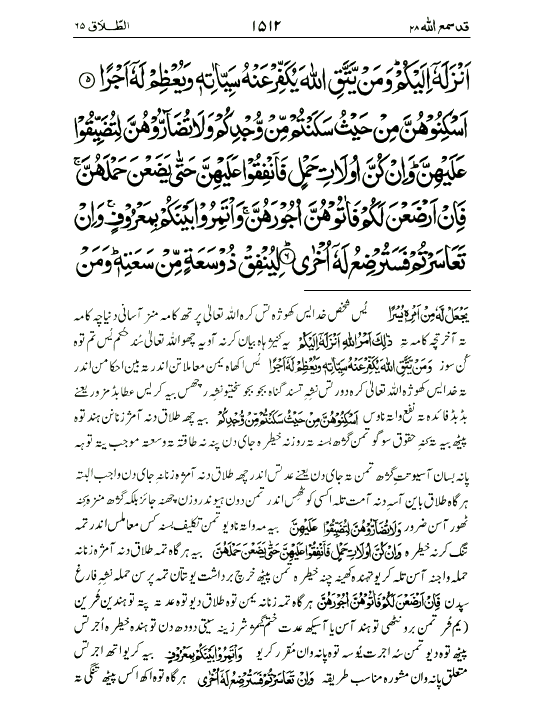 قد سمع الله ۲۸ ۱۵۱۲ الطّلاق ۶۵
اَنْزَلَهٗۤ اِلَیْكُمْ ؕ وَ مَنْ یَّتَّقِ اللّٰهَ یُكَفِّرْ عَنْهُ سَیِّاٰتِهٖ وَ یُعْظِمْ لَهٗۤ اَجْرًا ۵
اَسْكِنُوْهُنَّ مِنْ حَیْثُ سَكَنْتُمْ مِّنْ وُّجْدِكُمْ وَ لَا تُضَآرُّوْهُنَّ لِتُضَیِّقُوْا
عَلَیْهِنَّ ؕ وَ اِنْ كُنَّ اُولَاتِ حَمْلٍ فَاَنْفِقُوْا عَلَیْهِنَّ حَتّٰی یَضَعْنَ حَمْلَهُنَّ ۚ
فَاِنْ اَرْضَعْنَ لَكُمْ فَاٰتُوْهُنَّ اُجُوْرَهُنَّ ۚ وَ اْتَمِرُوْا بَیْنَكُمْ بِمَعْرُوْفٍ ۚ وَ اِنْ
تَعَاسَرْتُمْ فَسَتُرْضِعُ لَهٗۤ اُخْرٰی ؕ ۶ لِیُنْفِقْ ذُوْ سَعَةٍ مِّنْ سَعَتِهٖ ؕ وَ مَنْ
یَجْعَلْ لَّهٗ مِنْ اَمْرِهٖ یُسْرًا یُس شخص خدایس کھوژہ تس کرہ اللہ تعالیٰ پرتھ کامہ منز آسانی دنیاچہ کامہ
تہ آخرتچہ کامہ تہ ذٰلِكَ اَمْرُ اللّٰهِ اَنْزَلَهٗۤ اِلَیْكُمْ یہ کینژھاہ بیان کرنہ آو یہ چھو اللہ تعالیٰ سُند حکم یُس تم توہ
کُن سوز وَ مَنْ یَّتَّقِ اللّٰهَ یُكَفِّرْ عَنْهُ سَیِّاٰتِهٖ وَ یُعْظِمْ لَهٗۤ اَجْرًا یُس اکھاہ یمن معاملاتن اندر تہ بین احکامن اندر
تہ خدایس کھوژہ اللہ تعالیٰ کرہ دور تس نشہ تسند گناہ بجو بجو سختیو نشہ رچھس بیہ کریس عطا بڈ مزور یعنے
بڈ بڈ فائدہ تہ نفع واتناوس اَسْكِنُوْهُنَّ مِنْ حَیْثُ سَكَنْتُمْ مِّنْ وُّجْدِكُمْ بیہ چھہ طلاق دنہ آمژ زنانن ہند توہ
پیٹھ بیہ تہ کنہ حقوق سو گو تمن گژھہ بسنہ تہ روزنہ خیطرہ جای دن پنہ نہ طاقتہ تہ وسعتہ موجب یتہ توہہ
پانہ بسان آسیو تتہ گژھہ تمن تہ جای دن یعنے عدتس اندر چھہ طلاق دنہ آمژہ زنانہ جای دن واجب البتہ
ہرگاہ طلاق باین آسہ دنہ آمت تلہ اکسی کوٹھس اندر تمن دون ہیوند روزن چھنہ جائز بلکہ گژھہ منزہ کنہ
ٹھور آسن ضرور وَ لَا تُضَآرُّوْهُنَّ لِتُضَیِّقُوْا عَلَیْهِنَّ بیہ مہ واتناو یو تمن تکلیف بسنہ کس معاملس اندر تمہ
تنگ کرنہ خیطرہ وَ اِنْ كُنَّ اُولَاتِ حَمْلٍ فَاَنْفِقُوْا عَلَیْهِنَّ حَتّٰی یَضَعْنَ حَمْلَهُنَّ بیہ ہرگاہ تمہ طلاق دنہ آمژہ زنانہ
حملہ واجنہ آسن تلہ کریو تہندہ کھینہ چنہ خیطرہ تمن پیٹھ خرچ برداشت یوتان تمہ پرسن حملہ نشہ فارغ
سپدن فَاِنْ اَرْضَعْنَ لَكُمْ فَاٰتُوْهُنَّ اُجُوْرَهُنَّ ہرگاہ تمہ زنانہ یمن توہ طلاق دیو توہ عدتہ پتہ توہندین شرین
(یم شر تمن برونٹھی توہند آسن یا آسیکھ عدت ختم گیمژ شر زینہ سیتی دودھ دن توہندہ خیطرہ اُجرتس
پیٹھ توہ دیو تمن سُہ اجرت یُوسہ توہ پانہ وان مقرر کریو وَ اْتَمِرُوْا بَیْنَكُمْ بِمَعْرُوْفٍ بیہ کریو اتھ اجرتس
متعلق پانہ وان مشورہ مناسب طریقہ وَ اِنْ تَعَاسَرْتُمْ فَسَتُرْضِعُ لَهٗۤ اُخْرٰی ہرگاہ توہ اکھ اکس پیٹھ تنگی تہ